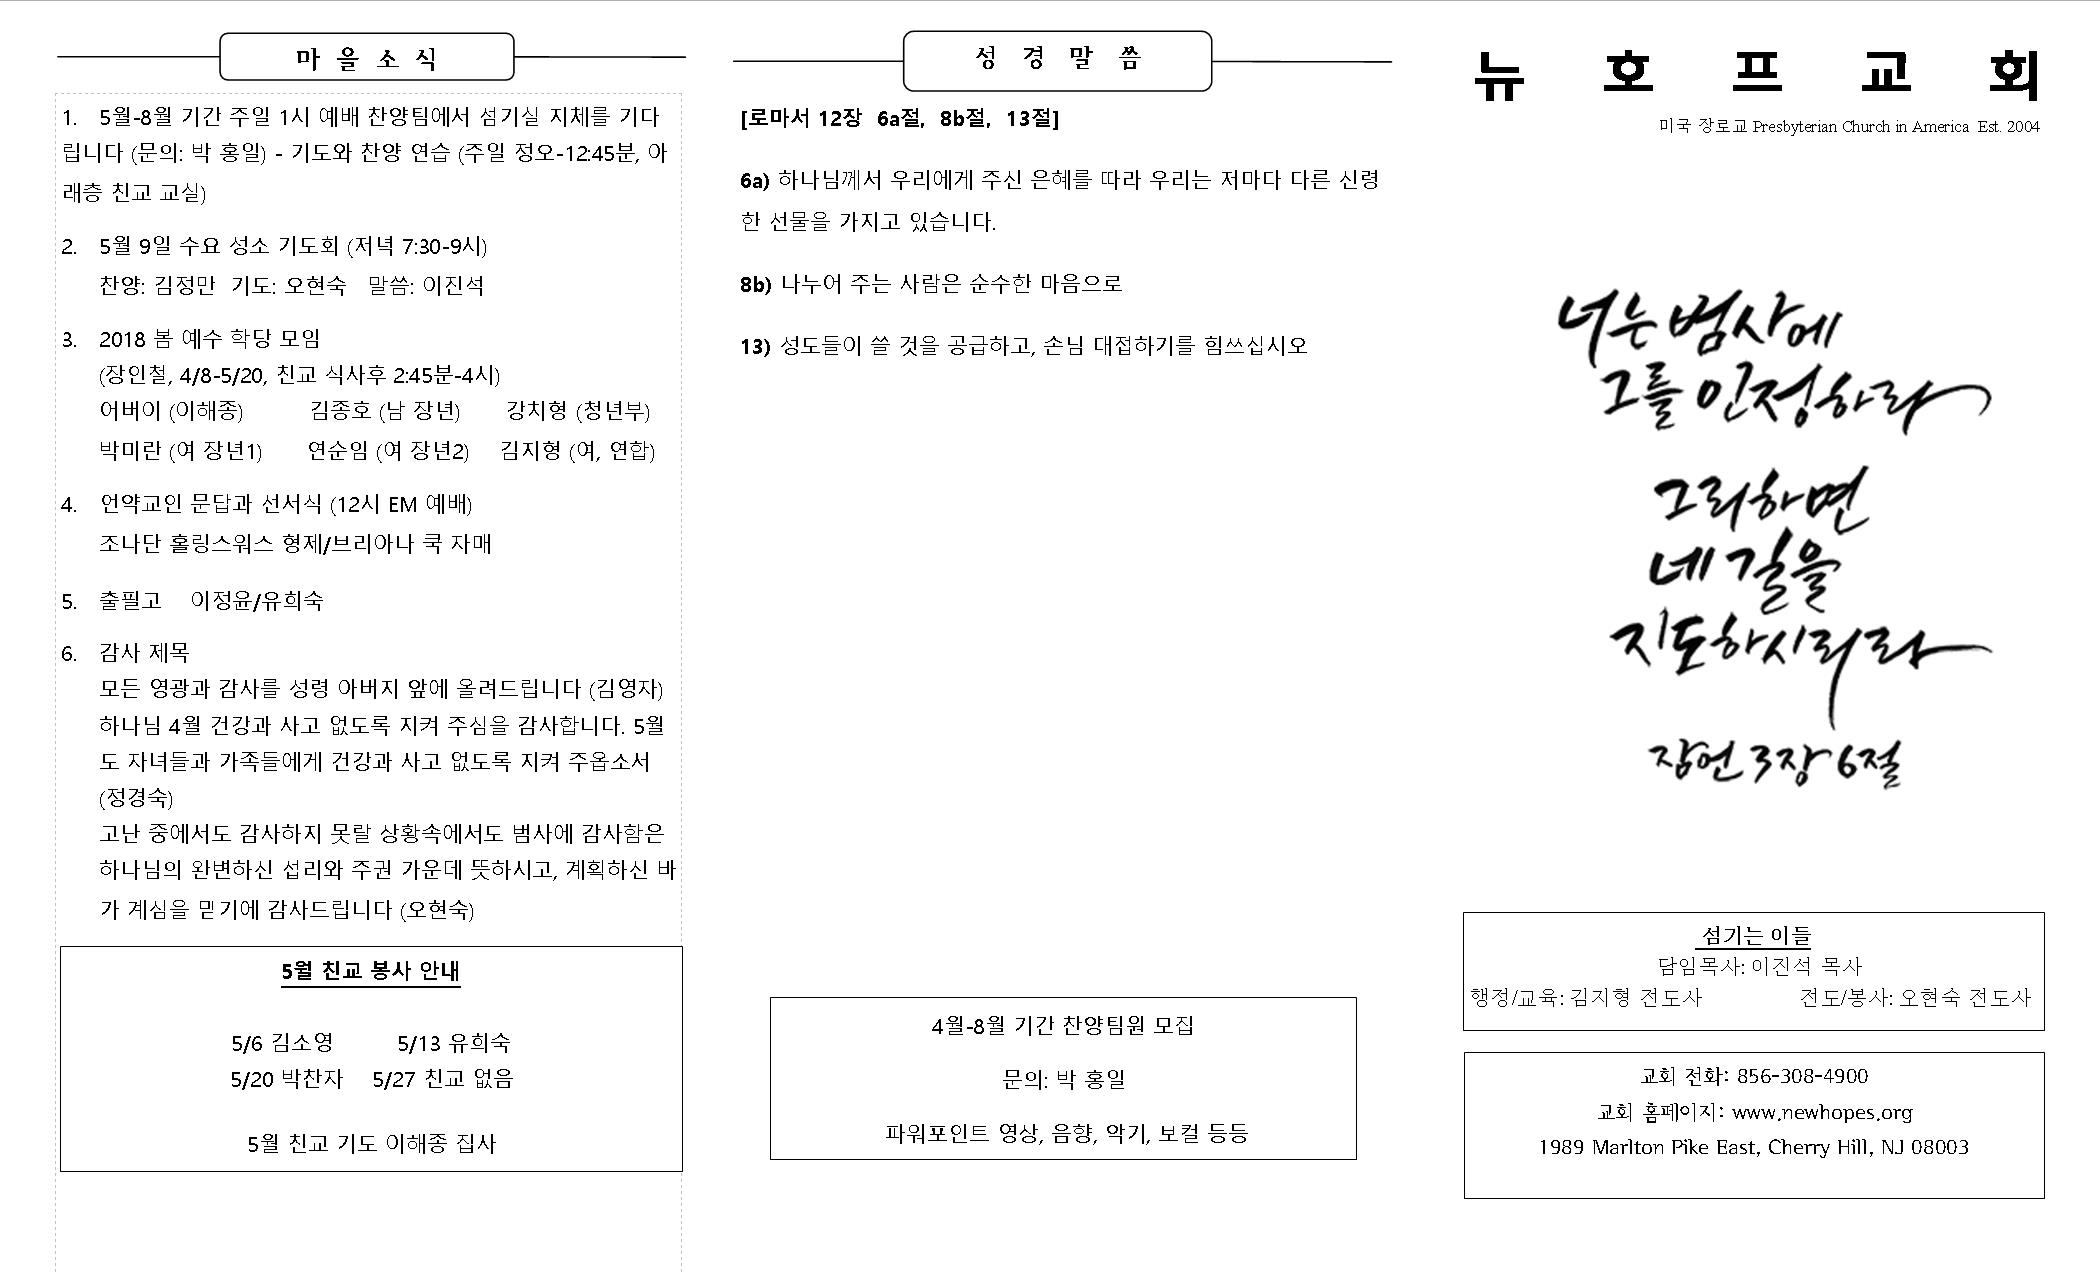 마 을 소 식
1. 5월-8월 기간 주일 1시 예배 찬양팀에서 섬기실 지체를 기다
립니다 (문의: 박 홍일) - 기도와 찬양 연습 (주일 정오-12:45분, 아
래층 친교 교실)
2. 5월 9일 수요 성소 기도회 (저녁 7:30-9시)
찬양: 김정만 기도: 오현숙 말씀: 이진석
3. 2018 봄 예수 학당 모임
(장인철, 4/8-5/20, 친교 식사후 2:45분-4시)
어버이 (이해종) 김종호 (남 장년) 강치형 (청년부)
박미란 (여 장년1) 연순임 (여 장년2) 김지형 (여, 연합)
4. 언약교인 문답과 선서식 (12시 EM 예배)
조나단 홀링스워스 형제/브리아나 쿡 자매
5. 출필고 이정윤/유희숙
6. 감사 제목
모든 영광과 감사를 성령 아버지 앞에 올려드립니다 (김영자)
하나님 4월 건강과 사고 없도록 지켜 주심을 감사합니다. 5월
도 자녀들과 가족들에게 건강과 사고 없도록 지켜 주옵소서
(정경숙)
고난 중에서도 감사하지 못랄 상황속에서도 범사에 감사함은
하나님의 완변하신 섭리와 주권 가운데 뜻하시고, 계획하신 바
가 계심을 믿기에 감사드립니다 (오현숙)
5월 친교 봉사 안내
5/6 김소영 5/13 유희숙
5/20 박찬자 5/27 친교 없음
5월 친교 기도 이해종 집사
성 경 말 씀
[로마서 12장 6a절, 8b절, 13절]
6a) 하나님께서 우리에게 주신 은혜를 따라 우리는 저마다 다른 신령
한 선물을 가지고 있습니다.
8b) 나누어 주는 사람은 순수한 마음으로
13) 성도들이 쓸 것을 공급하고, 손님 대접하기를 힘쓰십시오
4월-8월 기간 찬양팀원 모집
문의: 박 홍일
파워포인트 영상, 음향, 악기, 보컬 등등
뉴 호 프 교 회
미국 장로교 Presbyterian Church in America Est. 2004
너는 범사에
그를 인정하라
그리하면
네 길을
지도하시리라
잠언 3장 6절
섬기는 이들
담임목사: 이진석 목사
행정/교육: 김지형 전도사 전도/봉사: 오현숙 전도사
교회 전화: 856-308-4900
교회 홈페이지: www.newhopes.org
1989 Marlton Pike East, Cherry Hill, NJ 08003